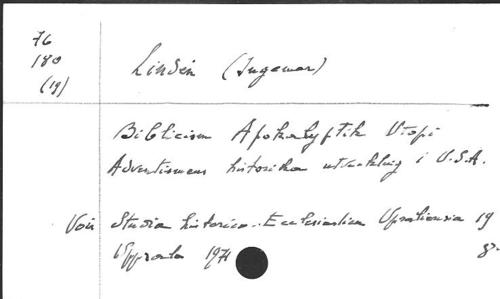 76
180
(19)
Lindén (Ingemar)
Biblicism Apokalyptik Utopi
Adventismens historika utveckling i U.S.A.
Voir Studia historico-Ecclesiastica Upsaliensia 19
Uppsala 1971 8-